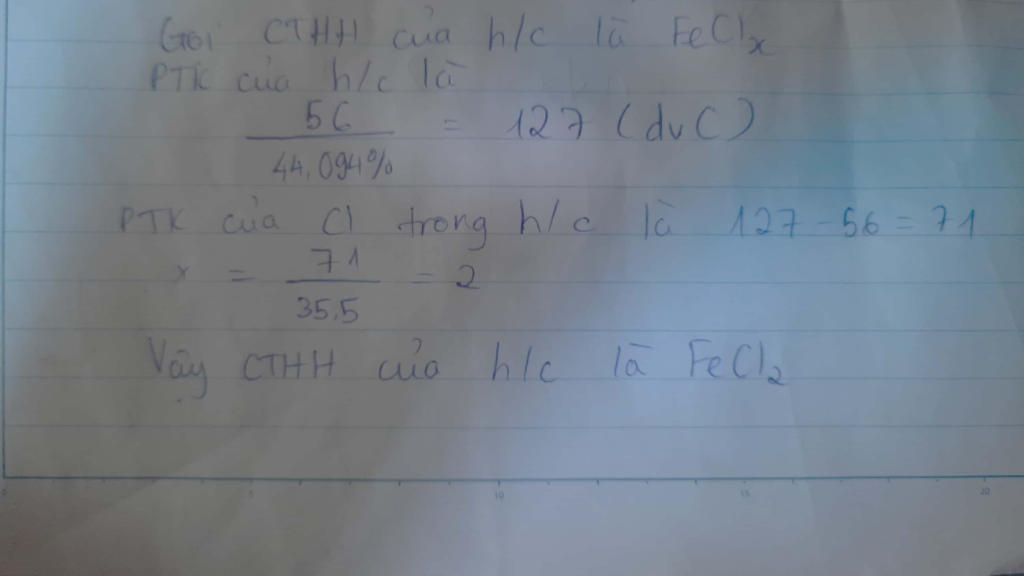 Gọi CTHH của h/c là FeClx
PTK của h/c là
56 / 44,094% = 127 (dvC)
PTK của Cl trong h/c là 127 - 56 = 71
x = 71 / 35,5 = 2
Vậy CTHH của h/c là FeCl2
0 5 10 15 20